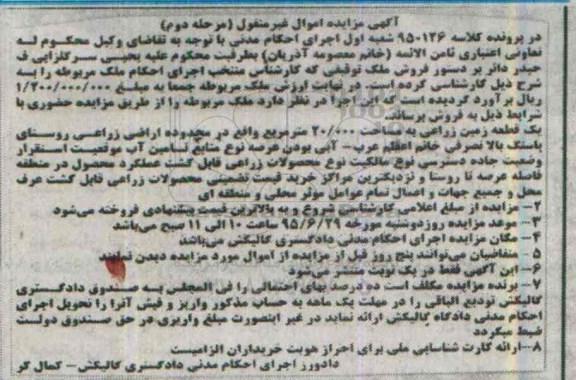 آگهی مزایده اموال غیرمنقول (مرحله دوم)
در پرونده کلاسه ۱۲۶-۹۵۰ شعبه اول اجرای احکام مدنی با توجه به تقاضای وکیل محکوم له
تعاونی اعتباری ثامن الائمه (خانم معصومه آذریان) بطرفیت محکوم علیه یحیی سرکلزایی ف
حیدر دائر بر دستور فروش ملک توقیفی که کارشناس منتخب اجرای احکام ملک مربوطه را بسه
شرح ذیل کارشناسی کرده است. در نهایت ارزش ملک مربوطه جمعا به مبلغ ۱/۲۰۰/۰۰۰/۰۰۰
ریال برآورد گردیده است که این اجرا در نظر دارد ملک مربوطه را از طریق مزایده حضوری با
شرایط ذیل به فروش برساند.
یک قطعه زمین زراعی به مساحت ۲۰/۰۰۰ مترمربع واقع در محدوده اراضی زراعی روستای
پاسنگ بالا تصرفی خانم اعظم عرب- آبی بودن عرصه نوع منابع تامین آب موقعیت استقرار
وضعیت جاده دسترسی نوع مالکیت نوع محصولات زراعی قابل کشت عملکرد محصول در منطقه
فاصله عرصه تا روستا و نزدیکترین مراکز خرید قیمت تضمینی محصولات زراعی قابل کشت عرف
محل و جمیع جهات و اعمال تمام عوامل موثر محلی و منطقه ای
۲- مزایده از مبلغ اعلامی کارشناسی شروع و به بالاترین قیمت پیشنهادی فروخته می‌شود
۳- موعد مزایده روز دوشنبه مورخه ۹۵/۶/۲۹ ساعت ۱۰ الی ۱۱ صبح می‌باشد
۴- مکان مزایده اجرای احکام مدنی دادگستری گالیکش می‌باشد
۵- متقاضیان می‌توانند پنج روز قبل از مزایده از اموال مورد مزایده دیدن نمایند
۶- این آگهی فقط در یک نوبت منتشر می‌شود
۷- برنده مزایده مکلف است ده درصد بهای احتمالی را فی المجلس به صندوق دادگستری
گالیکش تودیع الباقی را در مهلت یک ماهه به حساب مذکور واریز و فیش آنرا را تحویل اجرای
احکام مدنی دادگاه گالیکش ارائه نماید در غیر اینصورت مبلغ واریزی در حق صندوق دولت
ضبط میگردد
۸- ارائه کارت شناسایی ملی برای احراز هویت خریداران الزامیست
دادورز اجرای احکام مدنی دادگستری گالیکش- کمال کر